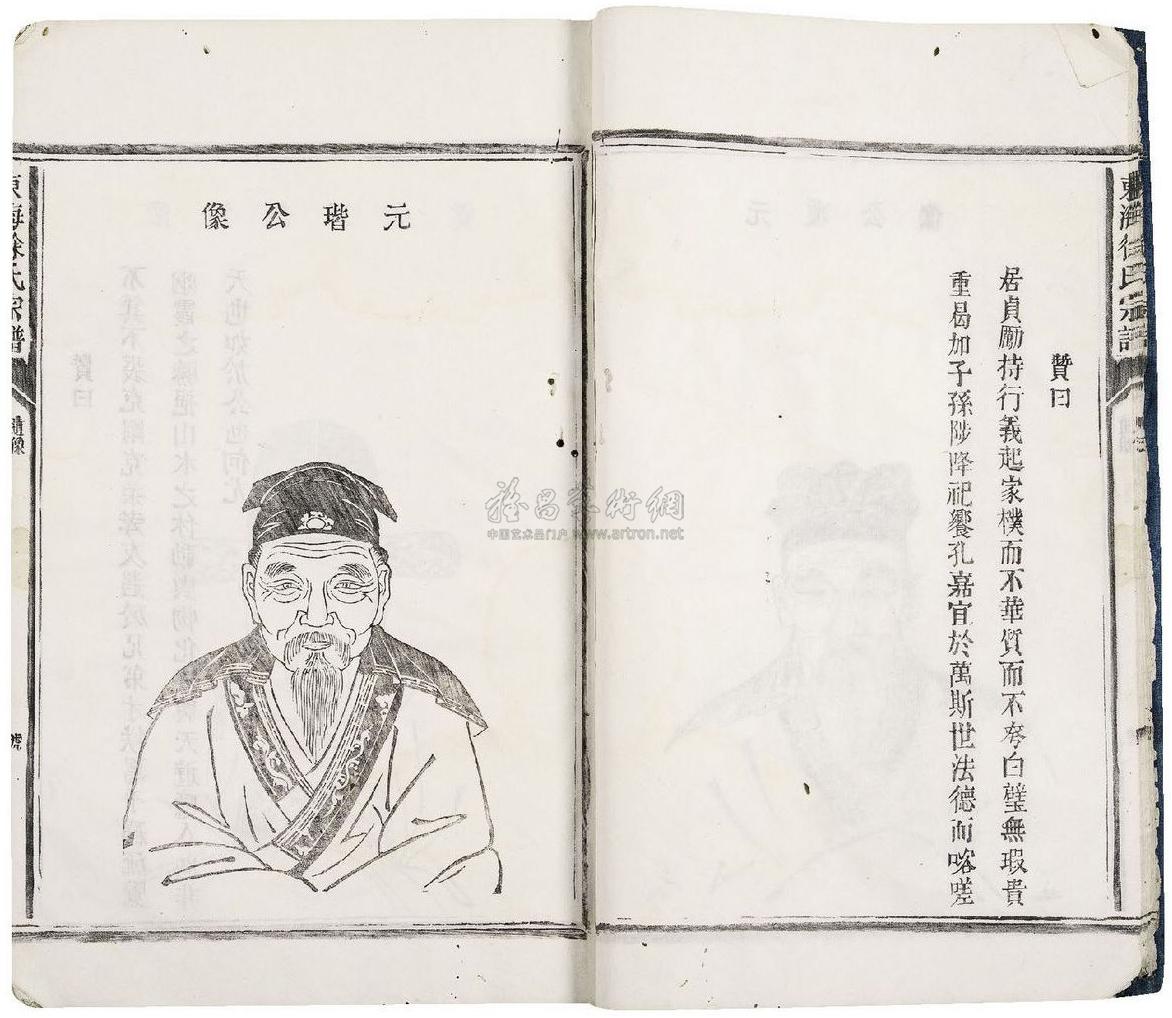 東海徐氏宗譜
贊曰
居貞勵持行義起家樸而不華質而不夸白璧無瑕貴
重曷加子孫陟降祀饗孔嘉宜於萬斯世法德而喀嗟
元瑎公像
東海徐氏宗譜
遺像
雅昌藝術網
中国艺术品门户 www.artron.net